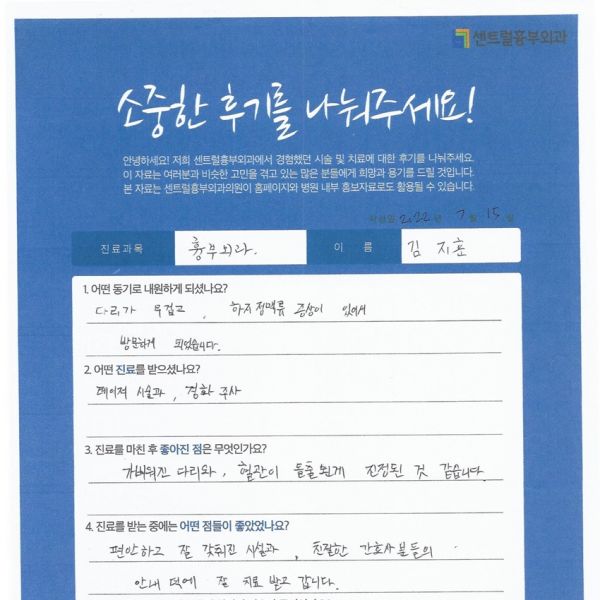 센트럴흉부외과
소중한 후기를 나눠주세요!
안녕하세요! 저희 센트럴흉부외과에서 경험했던 시술 및 치료에 대한 후기를 나눠주세요.
이 자료는 여러분과 비슷한 고민을 겪고 있는 많은 분들에게 희망과 용기를 드릴 것입니다.
본 자료는 센트럴흉부외과의원이 홈페이지와 병원 내부 홍보자료로도 활용될 수 있습니다.
작성일 2022 년 7 월 15 일
진료과목 흉부외과. 이 름 김 지훈
1. 어떤 동기로 내원하게 되셨나요?
다리가 무겁고, 하지정맥류 증상이 있어서
방문하게 되었습니다.
2. 어떤 진료를 받으셨나요?
레이저 시술과, 경화 주사
3. 진료를 마친 후 좋아진 점은 무엇인가요?
가벼워진 다리와, 혈관이 돌출된게 진정된 것 같습니다.
4. 진료를 받는 중에는 어떤 점들이 좋았었나요?
편안하고 잘 갖춰진 시설과, 친절한 간호사분들의
안내 덕에 잘 치료 받고 갑니다.